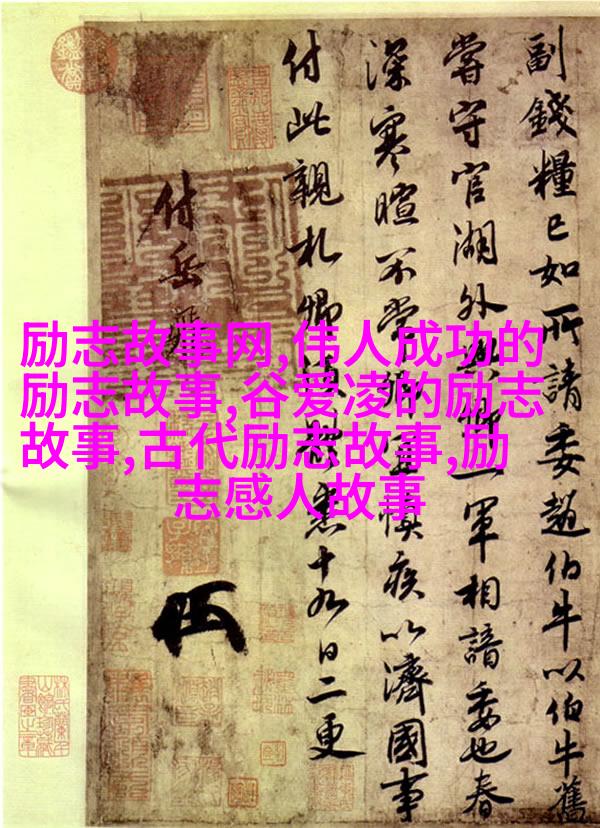 励志故事网,伟人成功的
励志故事,谷爱凌的励志
故事,古代励志故事,励
志感人故事
副錢糧已如所請委趙伯牛以伯牛舊
嘗守官湖外與卿一軍相諳委也春
深寒暄不常卿宜慎疾以濟國事
付此親札卿須體悉十九日二更
付岳飛